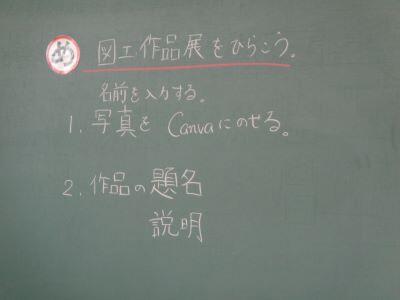 め 図工作品展をひらこう。
名前を入力する。
1. 写真を Canvaにのせる。
2. 作品の題名
説明